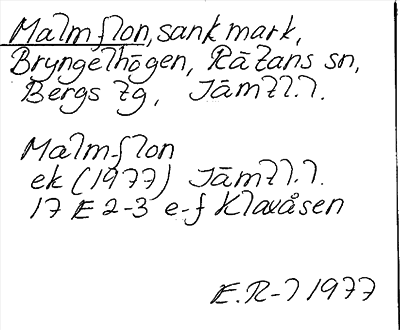 Malmflon, sank mark,
Bryngelhögen, Rätans sn,
Bergs tg, Jämtl.l.
Malm-flon
ek (1977) Jämtl.l.
17 E 2-3 e-f Klaxåsen
E.R-l 1977